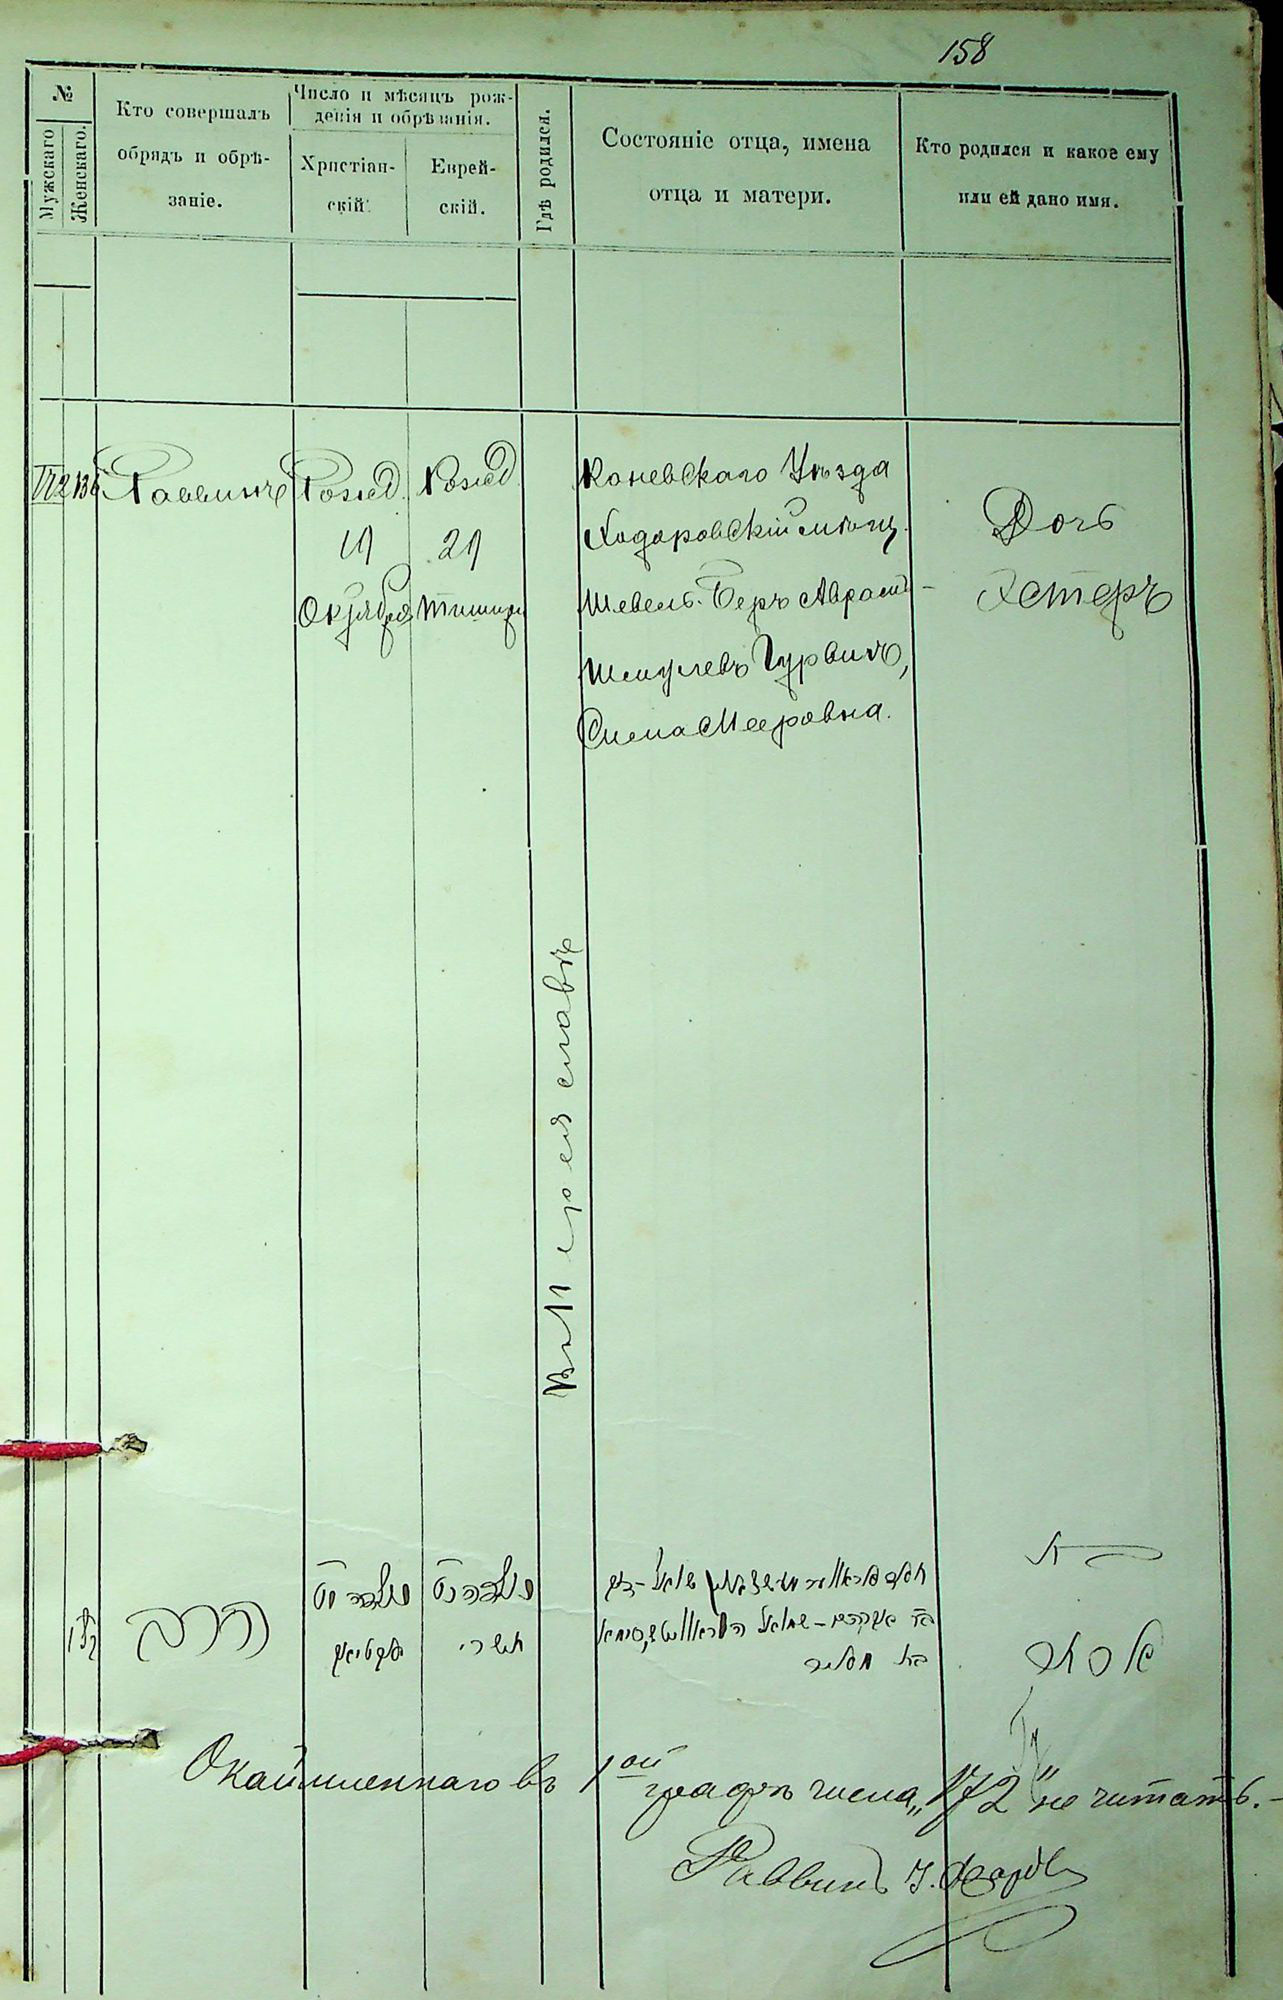 158
№
Мужскаго
Женскаго.
Кто совершалъ
обрядъ и обрѣ-
заніе.
Число и мѣсяцъ рож-
денія и обрѣзанія.
Христіан-
скій.
Еврей-
скій.
Гдѣ родился.
Состояніе отца, имена
отца и матери.
Кто родился и какое ему
или ей дано имя.
172
136
Раввинъ
Рожд.
19
Октября
Рожд.
29
Тишри
Въ Переяславѣ
Каневскаго Уѣзда
Ходоровскій мѣщ.
Шевель-Беръ Аврамъ-
Шмулевъ Гурвичъ,
Сима Мееровна.
Дочь
Эстеръ
הרב
תשרי
בת
אסתר
Окаймленнаго въ 1ой графѣ числа „172“ не читать.-
Раввинъ